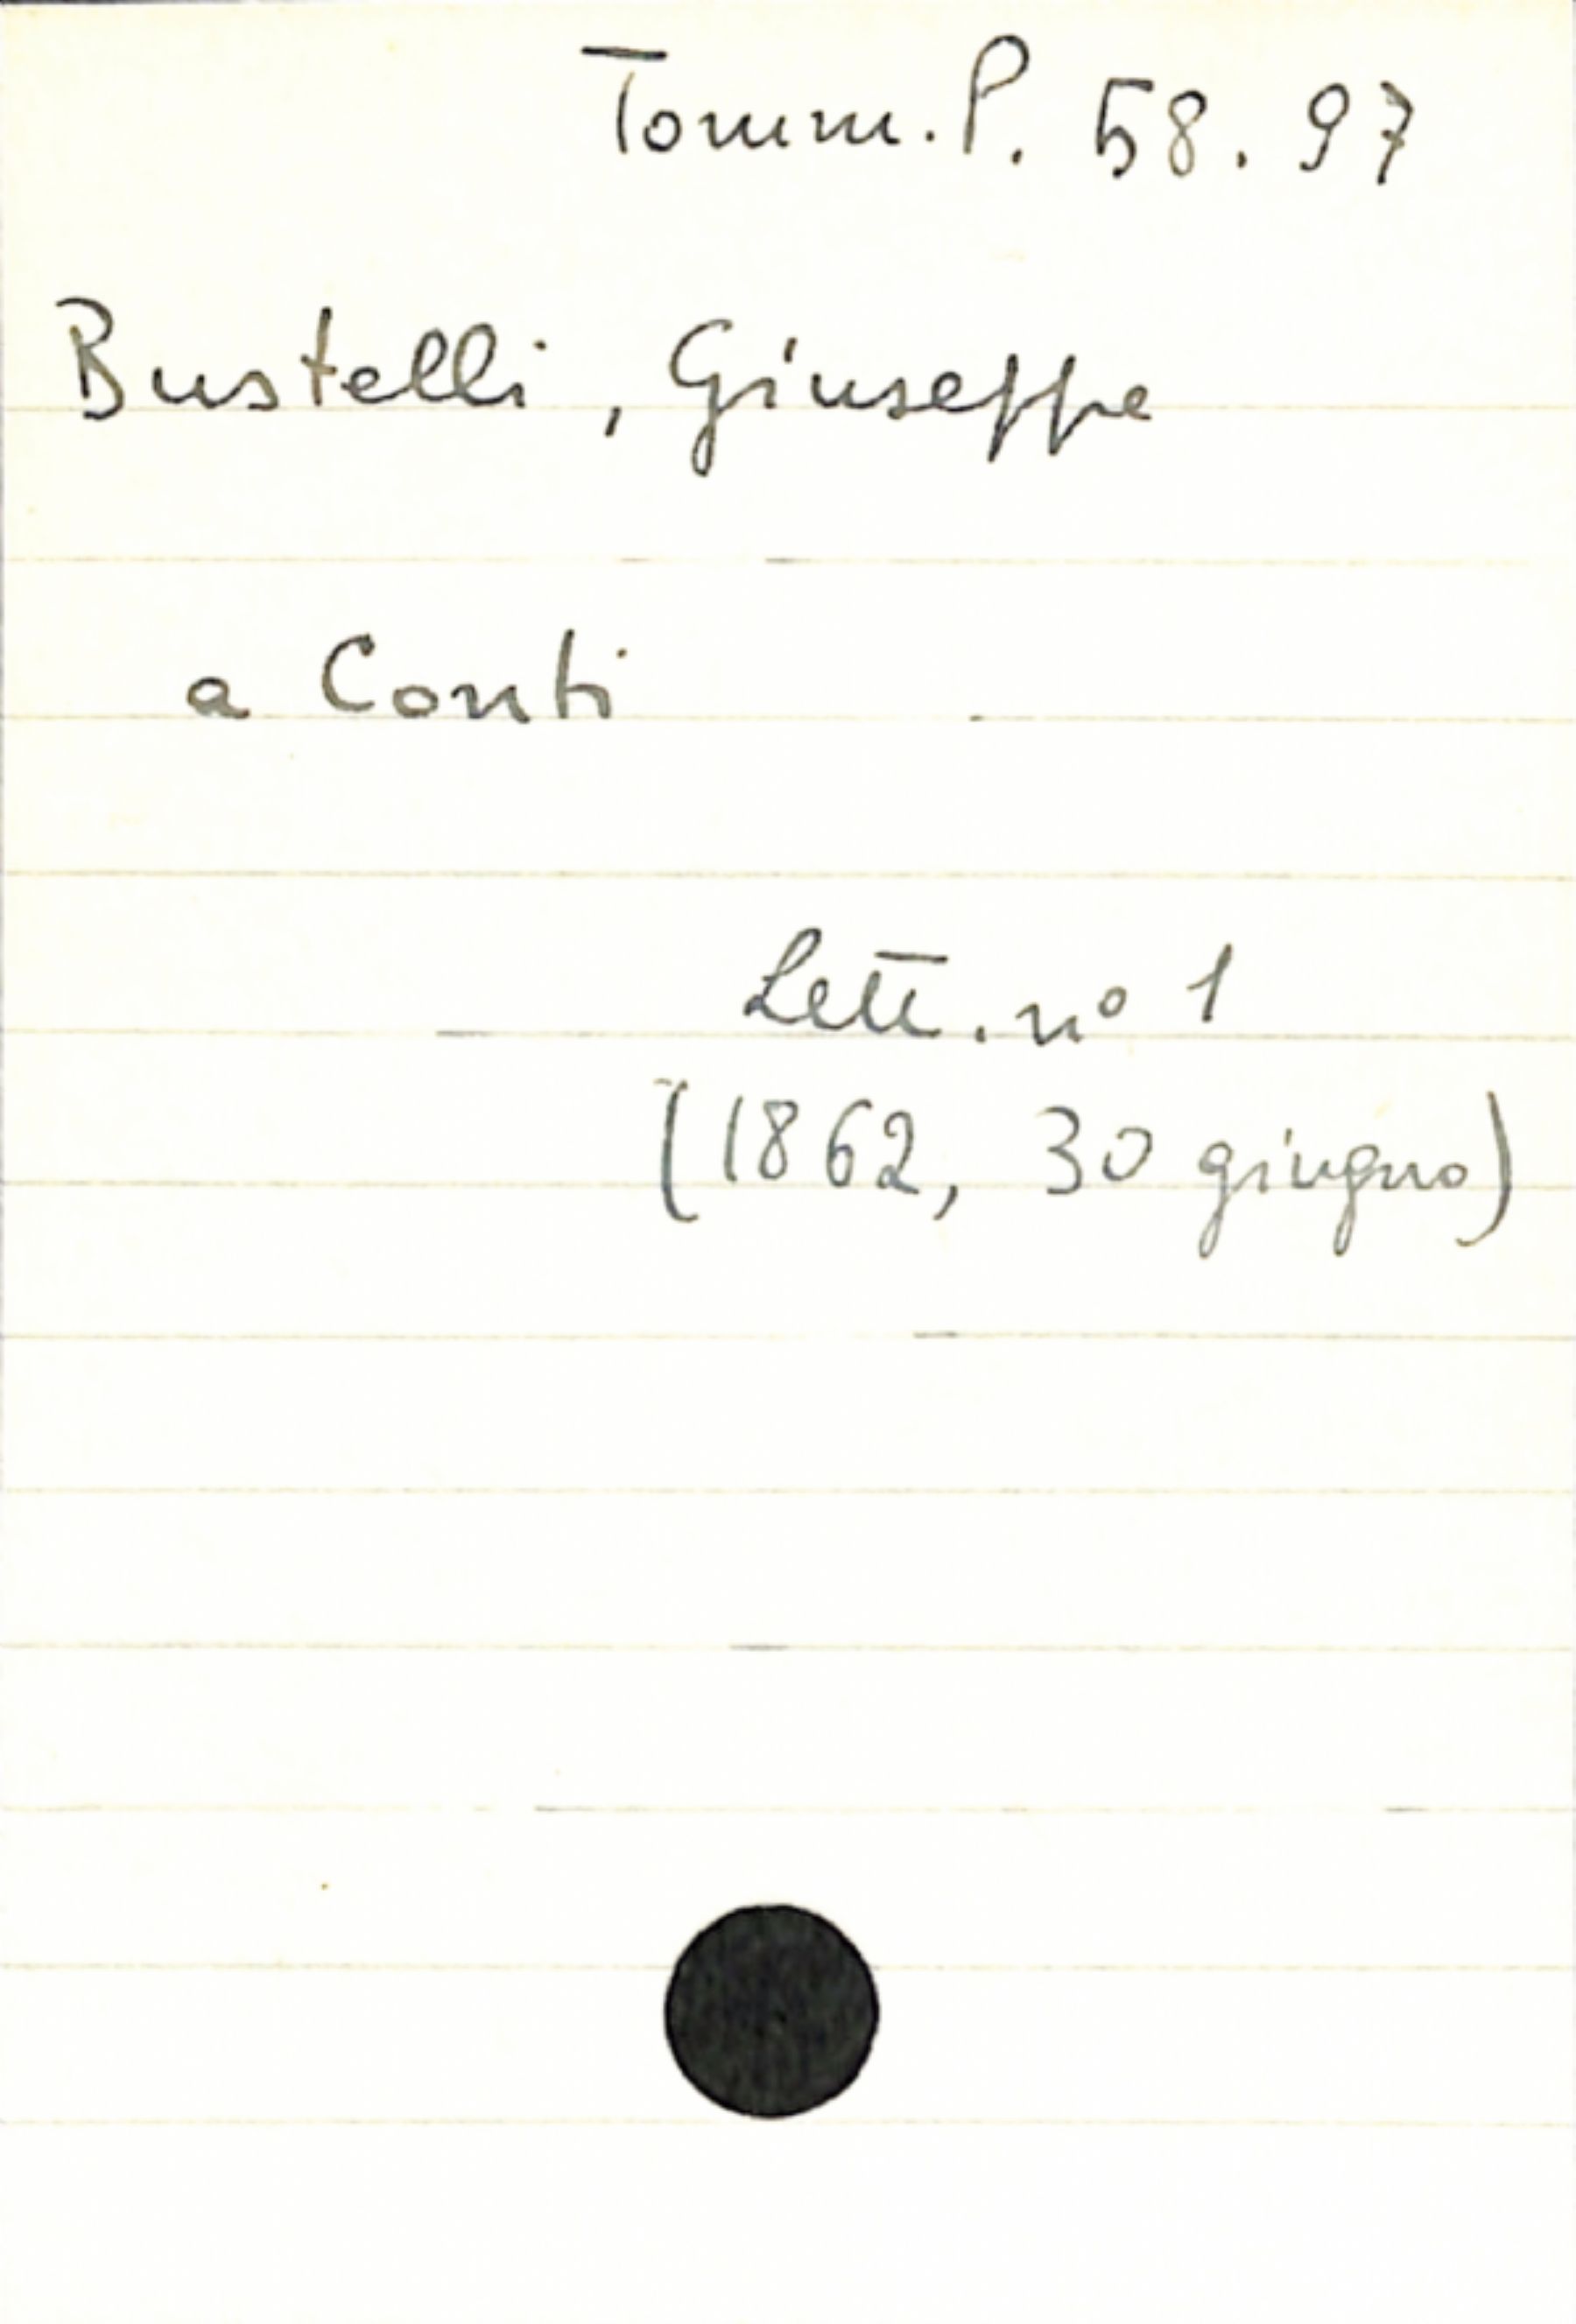 Tomm. P. 58. 97
Bustelli, Giuseppe
a Conti
Lett. nº 1
(1862, 30 giugno)